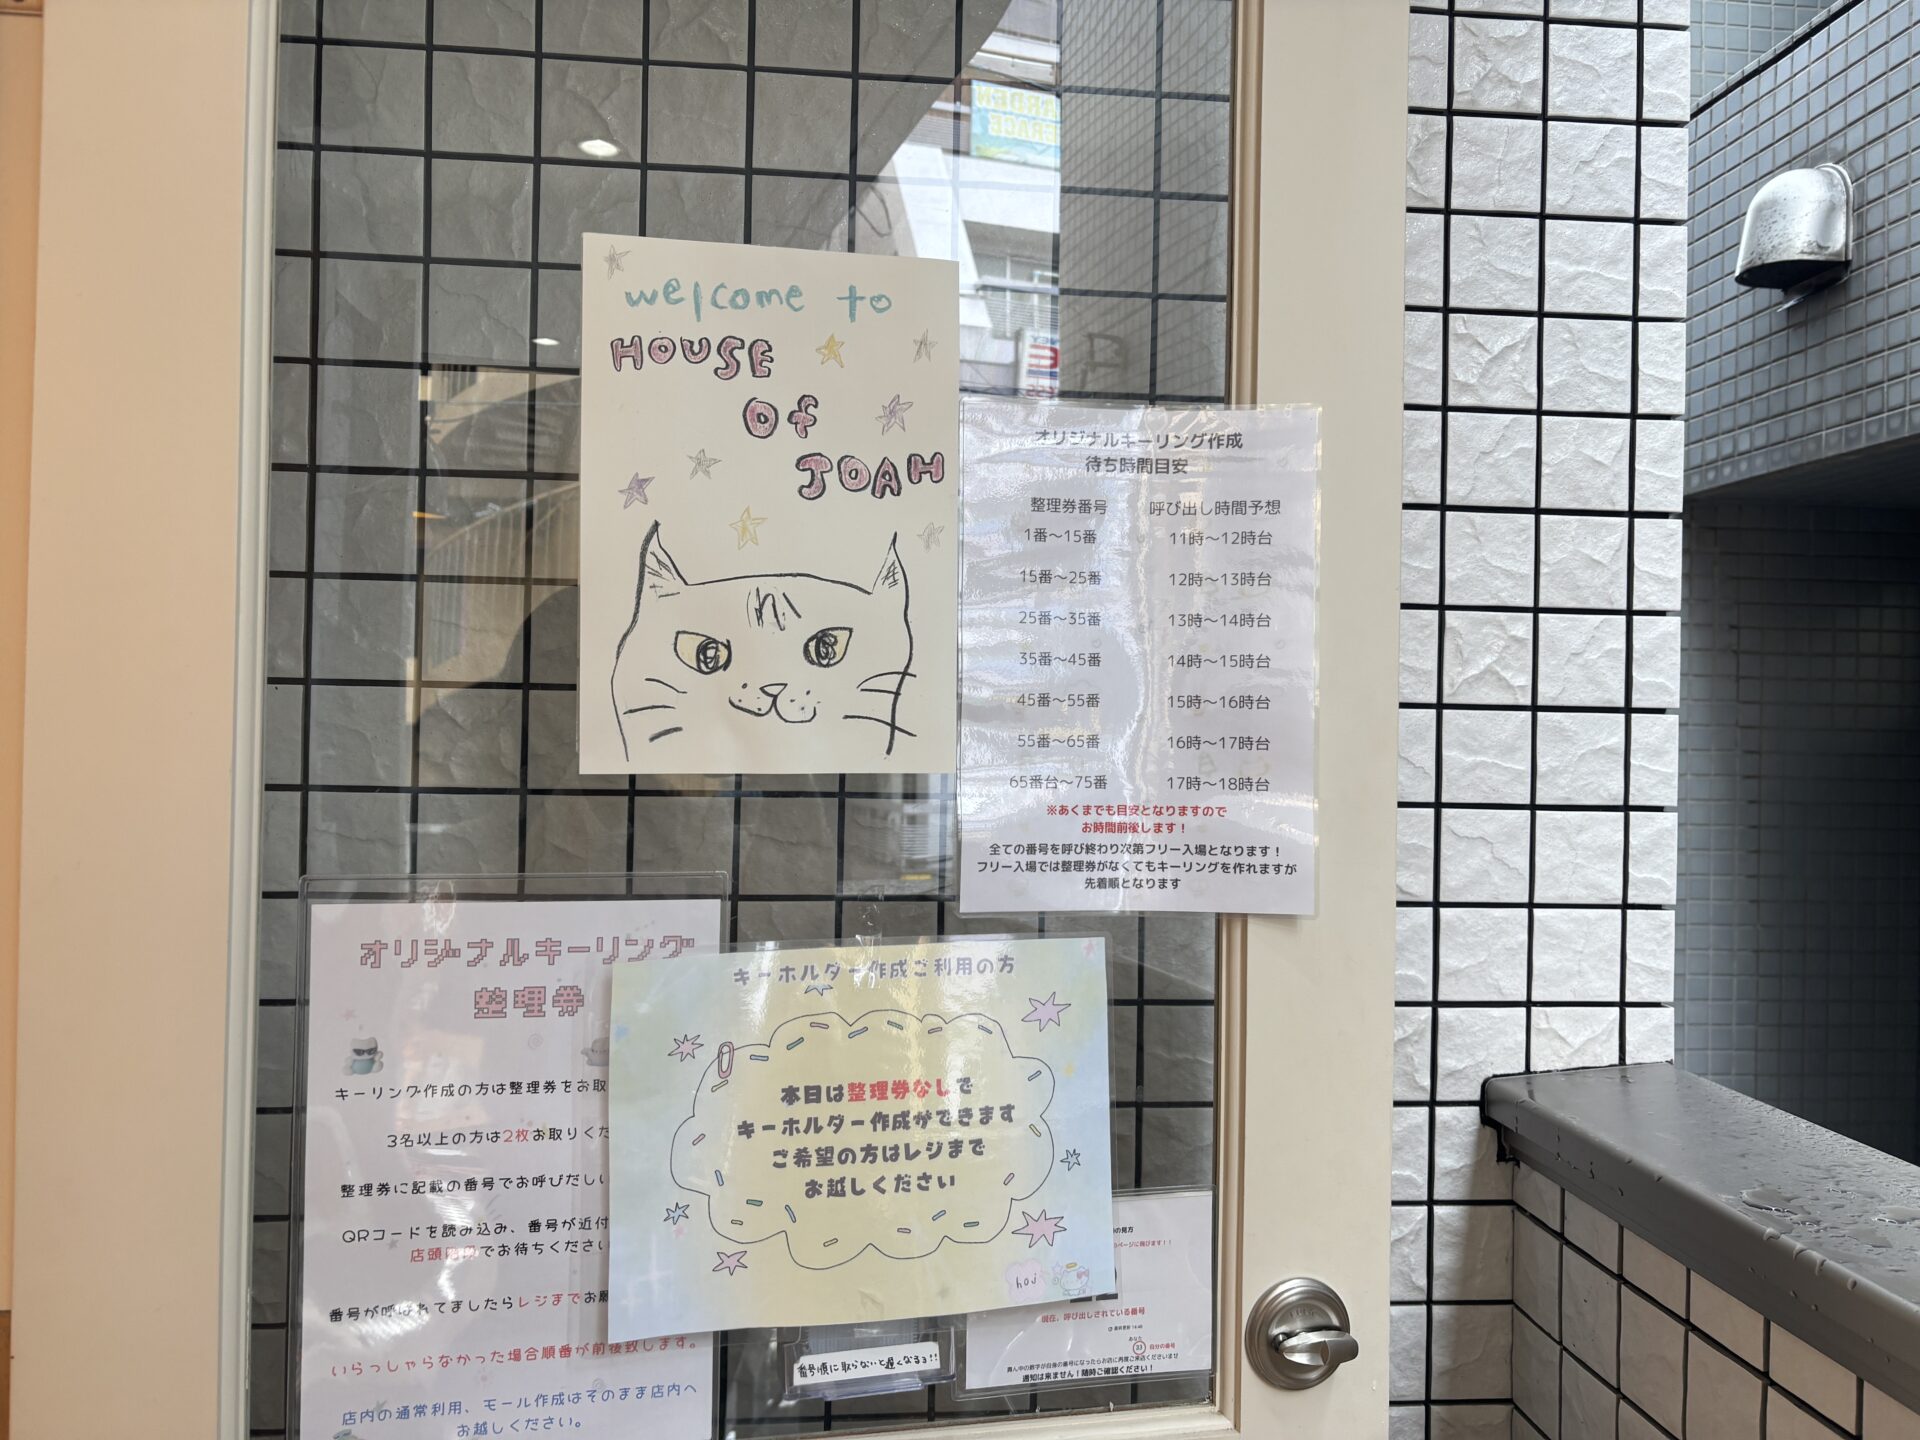 welcome to
HOUSE
Of
JOAH
オリジナルキーリング作成
待ち時間目安
整理券番号 呼び出し時間予想
1番～15番 11時～12時台
15番～25番 12時～13時台
25番～35番 13時～14時台
35番～45番 14時～15時台
45番～55番 15時～16時台
55番～65番 16時～17時台
65番台～75番 17時～18時台
※あくまでも目安となりますので
お時間前後します！
全ての番号を呼び終わり次第フリー入場となります！
フリー入場では整理券がなくてもキーリングを作れますが
先着順となります
オリジナルキーリング
整理券
キーリング作成の方は整理券をお取
3名以上の方は2枚お取りくだ
整理券に記載の番号でお呼びだし
QRコードを読み込み、番号が近付
店頭
でお待ちください
番号が呼ばれてましたらレジまでお願
いらっしゃらなかった場合順番が前後致します。
店内の通常利用、モール作成はそのまま店内へ
お越しください。
キーホルダー作成ご利用の方
本日は整理券なしで
キーホルダー作成ができます
ご希望の方はレジまで
お越しください
hoj
番号順に取らないと遅くなるョ!!
の見方
ページに飛びます！！
現在、呼び出しされている番号
あなた
33 自分の番号
真ん中の数字が自身の番号になったらお店に再度ご来店くださいませ
通知は来ません！随時ご確認ください！